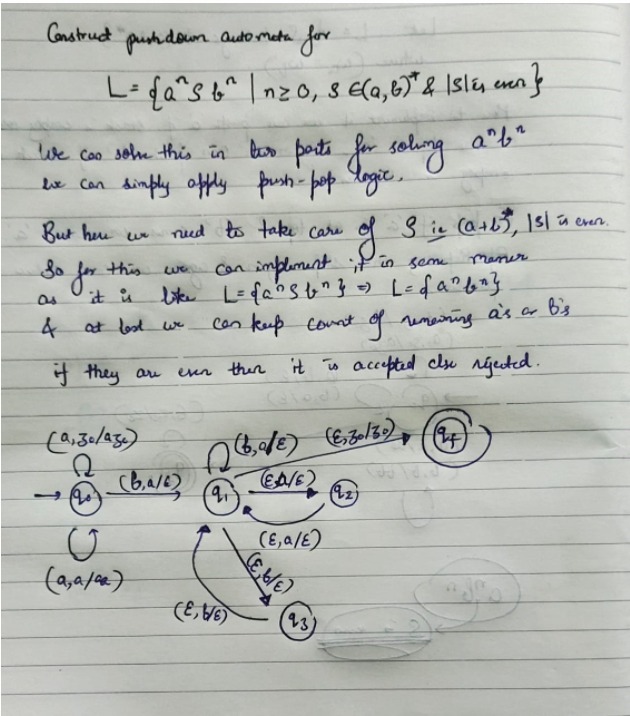 Construct pushdown automata for
L = {aⁿ S bⁿ | n ≥ 0, S ∈ (a, b)* & |S| is even}
We can solve this in two parts for solving aⁿbⁿ
we can simply apply push-pop logic.
But here we need to take care of S ie (a+b)*, |S| is even.
So for this we can implement it in same manner
as it is like L = {aⁿ S bⁿ} ⇒ L = {aⁿbⁿ}
& at last we can keep count of remaining a's or b's
if they are even then it is accepted else rejected.
(a, z₀/az₀)
(b, a/ε)
(ε, z₀/z₀)
qf
q₀
(b, a/ε)
q₁
(ε, a/ε)
q₂
(ε, a/ε)
(a, a/aa)
(ε, b/ε)
(ε, b/ε)
q₃